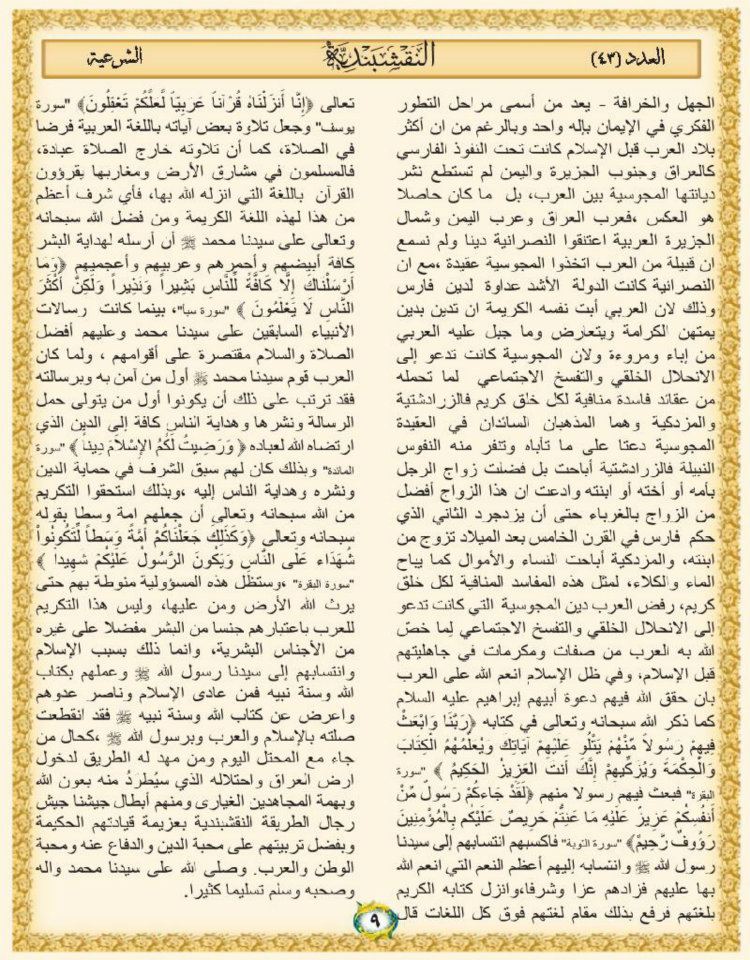 العدد (٤٣)
النقشبندية
الشرعية
الجهل والخرافة - يعد من أسمى مراحل التطور
الفكري في الإيمان بإله واحد وبالرغم من ان أكثر
بلاد العرب قبل الإسلام كانت تحت النفوذ الفارسي
كالعراق وجنوب الجزيرة واليمن لم تستطع نشر
ديانتها المجوسية بين العرب، بل ما كان حاصلا
هو العكس ،فعرب العراق وعرب اليمن وشمال
الجزيرة العربية اعتنقوا النصرانية دينا ولم نسمع
ان قبيلة من العرب اتخذوا المجوسية عقيدة ،مع ان
النصرانية كانت الدولة الأشد عداوة لدين فارس
وذلك لان العربي أبت نفسه الكريمة ان تدين بدين
يمتهن الكرامة ويتعارض وما جبل عليه العربي
من إباء ومروءة ولان المجوسية كانت تدعو إلى
الانحلال الخلقي والتفسخ الاجتماعي لما تحمله
من عقائد فاسدة منافية لكل خلق كريم فالزرادشتية
والمزدكية وهما المذهبان السائدان في العقيدة
المجوسية دعتا على ما تأباه وتنفر منه النفوس
النبيلة فالزرادشتية أباحت بل فضلت زواج الرجل
بأمه أو أخته أو ابنته وادعت ان هذا الزواج أفضل
من الزواج بالغرباء حتى أن يزدجرد الثاني الذي
حكم فارس في القرن الخامس بعد الميلاد تزوج من
ابنته، والمزدكية أباحت النساء والأموال كما يباح
الماء والكلاء، لمثل هذه المفاسد المنافية لكل خلق
كريم، رفض العرب دين المجوسية التي كانت تدعو
إلى الانحلال الخلقي والتفسخ الاجتماعي لِما خصّ
الله به العرب من صفات ومكرمات في جاهليتهم
قبل الإسلام، وفي ظل الإسلام انعم الله على العرب
بان حقق الله فيهم دعوة أبيهم إبراهيم عليه السلام
كما ذكر الله سبحانه وتعالى في كتابه ﴿رَبَّنَا وَابْعَثْ
فِيهِمْ رَسُولاً مِّنْهُمْ يَتْلُو عَلَيْهِمْ آيَاتِكَ وَيُعَلِّمُهُمُ الْكِتَابَ
وَالْحِكْمَةَ وَيُزَكِّيهِمْ إِنَّكَ أَنتَ العَزِيزُ الحَكِيمُ ﴾ "سورة
البقرة" فبعث فيهم رسولا منهم ﴿لَقَدْ جَاءَكُمْ رَسُولٌ مِّنْ
أَنفُسِكُمْ عَزِيزٌ عَلَيْهِ مَا عَنِتُّمْ حَرِيصٌ عَلَيْكُم بِالْمُؤْمِنِينَ
رَؤُوفٌ رَّحِيمٌ﴾ "سورة التوبة" فاكسبهم انتسابهم إلى سيدنا
رسول الله ﷺ وانتسابه إليهم أعظم النعم التي انعم الله
بها عليهم فزادهم عزا وشرفا،وانزل كتابه الكريم
بلغتهم فرفع بذلك مقام لغتهم فوق كل اللغات قال
تعالى ﴿إِنَّا أَنزَلْنَاهُ قُرْآناً عَرَبِيّاً لَّعَلَّكُمْ تَعْقِلُونَ﴾ "سورة
يوسف" وجعل تلاوة بعض آياته باللغة العربية فرضا
في الصلاة، كما أن تلاوته خارج الصلاة عبادة،
فالمسلمون في مشارق الأرض ومغاربها يقرؤون
القرآن باللغة التي انزله الله بها، فأي شرف أعظم
من هذا لهذه اللغة الكريمة ومن فضل الله سبحانه
وتعالى على سيدنا محمد ﷺ أن أرسله لهداية البشر
كافة أبيضهم وأحمرهم وعربيهم وأعجميهم ﴿وَمَا
أَرْسَلْنَاكَ إِلَّا كَافَّةً لِّلنَّاسِ بَشِيراً وَنَذِيراً وَلَكِنَّ أَكْثَرَ
النَّاسِ لَا يَعْلَمُونَ ﴾ "سورة سبأ"، بينما كانت رسالات
الأنبياء السابقين على سيدنا محمد وعليهم أفضل
الصلاة والسلام مقتصرة على أقوامهم ، ولما كان
العرب قوم سيدنا محمد ﷺ أول من آمن به وبرسالته
فقد ترتب على ذلك أن يكونوا أول من يتولى حمل
الرسالة ونشرها وهداية الناس كافة إلى الدين الذي
ارتضاه الله لعباده ﴿وَرَضِيتُ لَكُمُ الإِسْلاَمَ دِيناً﴾ "سورة
المائدة" وبذلك كان لهم سبق الشرف في حماية الدين
ونشره وهداية الناس إليه ،وبذلك استحقوا التكريم
من الله سبحانه وتعالى أن جعلهم امة وسطا بقوله
سبحانه وتعالى ﴿وَكَذَلِكَ جَعَلْنَاكُمْ أُمَّةً وَسَطاً لِّتَكُونُواْ
شُهَدَاء عَلَى النَّاسِ وَيَكُونَ الرَّسُولُ عَلَيْكُمْ شَهِيداً ﴾
"سورة البقرة" ،وستظل هذه المسؤولية منوطة بهم حتى
يرث الله الأرض ومن عليها، وليس هذا التكريم
للعرب باعتبارهم جنسا من البشر مفضلا على غيره
من الأجناس البشرية، وانما ذلك بسبب الإسلام
وانتسابهم إلى سيدنا رسول الله ﷺ وعملهم بكتاب
الله وسنة نبيه فمن عادى الإسلام وناصر عدوهم
واعرض عن كتاب الله وسنة نبيه ﷺ فقد انقطعت
صلته بالإسلام والعرب وبرسول الله ﷺ ،كحال من
جاء مع المحتل اليوم ومن مهد له الطريق لدخول
ارض العراق واحتلاله الذي سيُطردُ منه بعون الله
وبهمة المجاهدين الغيارى ومنهم أبطال جيشنا جيش
رجال الطريقة النقشبندية بعزيمة قيادتهم الحكيمة
وبفضل تربيتهم على محبة الدين والدفاع عنه ومحبة
الوطن والعرب. وصلى الله على سيدنا محمد واله
وصحبه وسلم تسليما كثيرا.
٩